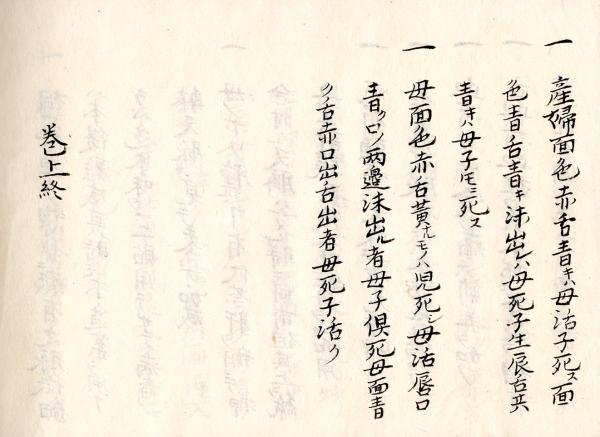 一 産婦面色赤舌青キハ母活子死ス面
色青舌青キ沫出レハ母死子生唇舌共
青キハ母子𪜈ニ死ス
一 母面色赤舌黄ナルモノハ児死シ母活唇口
青ク口ノ両邊沫出ル者母子倶死母面青
ク舌赤口出舌出者母死子活ク
巻上終